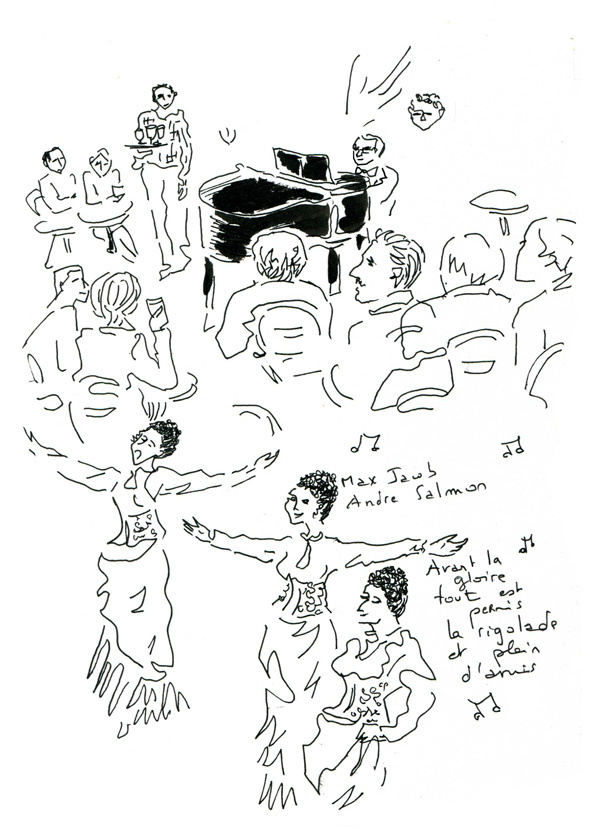 Max Jacob
Andre Salmon
Avant la
gloire
tout est
permis
la rigolade
et plein
d'amis